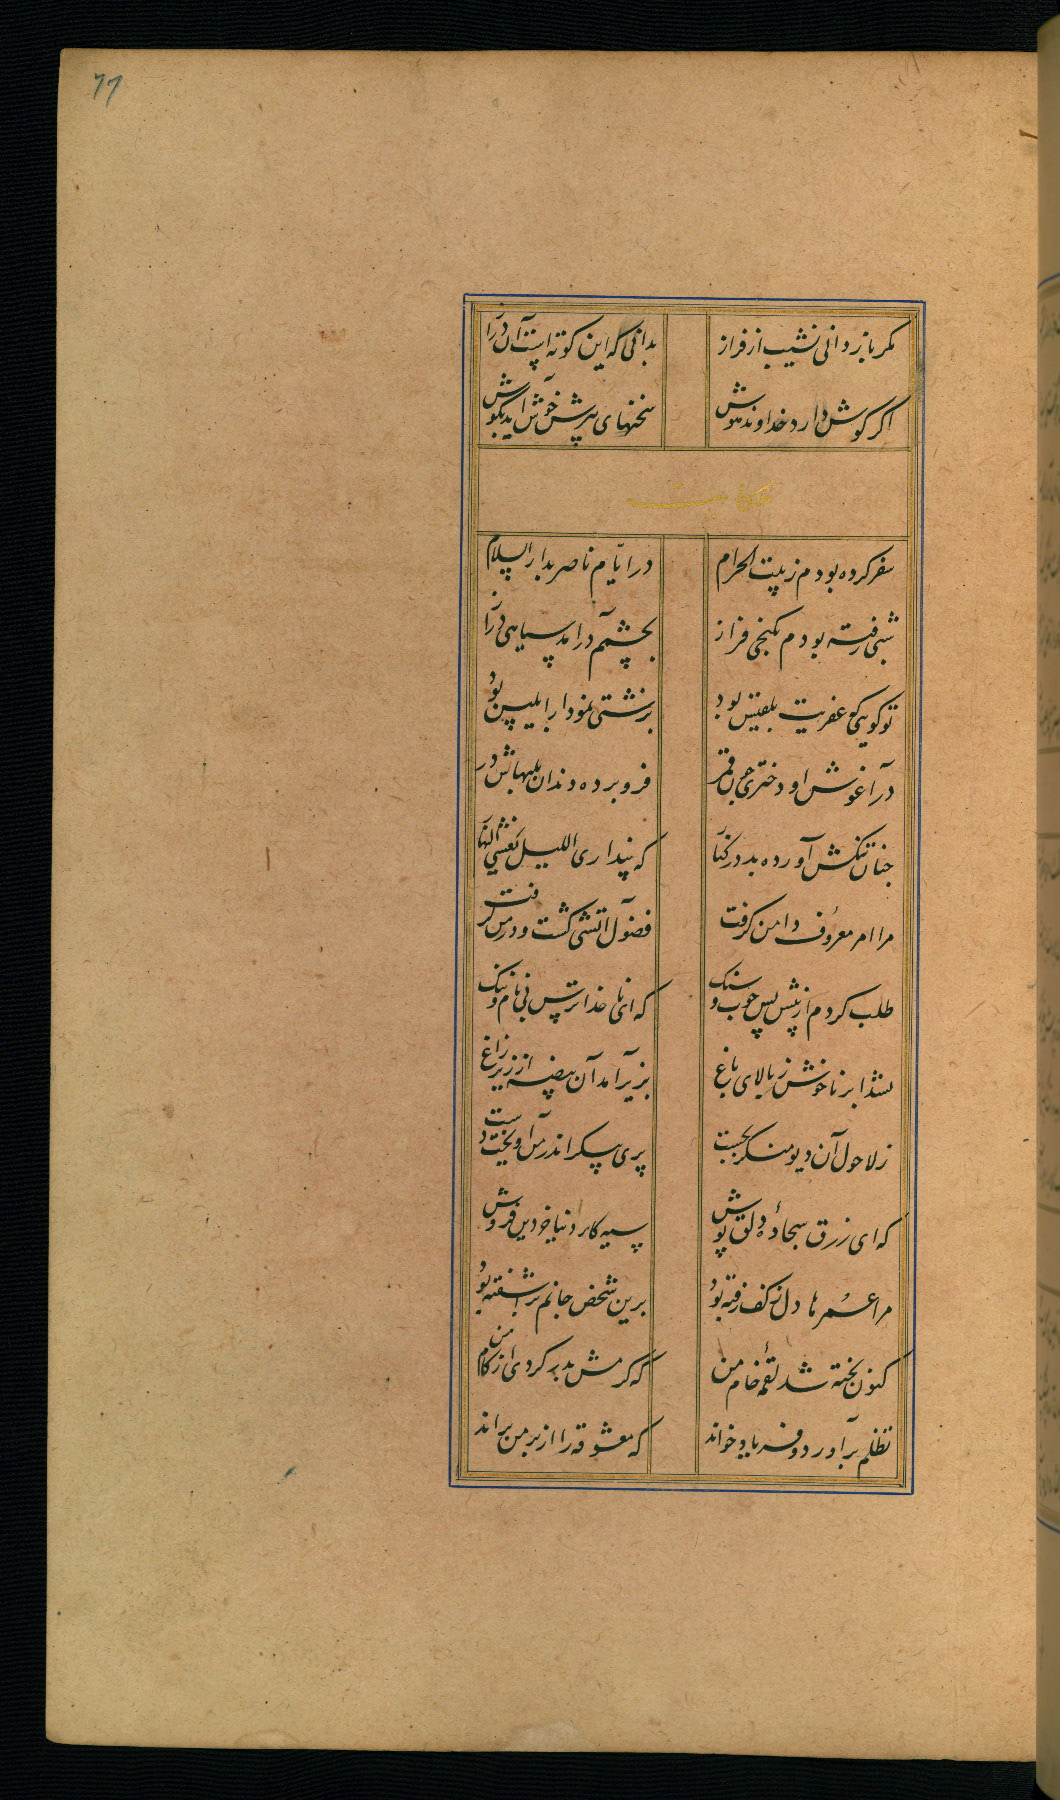 77
مکر باز دانی نشیب از فراز
بدانی که این کوته است آن دراز
اکر کوش دارد خداوند هوش
سخنهای پیرش خوش آید بکوش
حکایت
سفر کرده بودم ز بیت الحرام
در ایّام ناصر بدار السلام
شبی رفته بودم بکنجی فراز
بچشمم در آمد سیاهی دراز
تو کویی که عفریت بلقیس بود
بزشتی نمودار ابلیس بود
در آغوش او دختری چون قمر
فرو برده دندان بلبهاش در
چنان تنکش آورده بد در کنار
که پنداری اللیل یغشی النهار
مرا امر معروف دامن کرفت
فضول آتشی کشت و در من کرفت
طلب کردم از پیش پس چوب و سنک
که ای نا خدا ترس بی نام و ننک
شد ابر ناخوش ز بالای باغ
بزیر آمد آن بیضه از زیر زاغ
ز لا حول آن دیو منکر بجست
پری پیکر اندر من آویخت دست
که ای زرق سجاده دلق پوش
سیه کار دنیا خر دین فروش
مرا عمرها دل ز کف رفته بود
برین شخص جانم بر آشفته بود
کنون پخته شد لقمه خام من
که کرمش بدر کردی از کام من
تظلم بر آورد و فریاد خواند
که معشوقه را از بر من براند